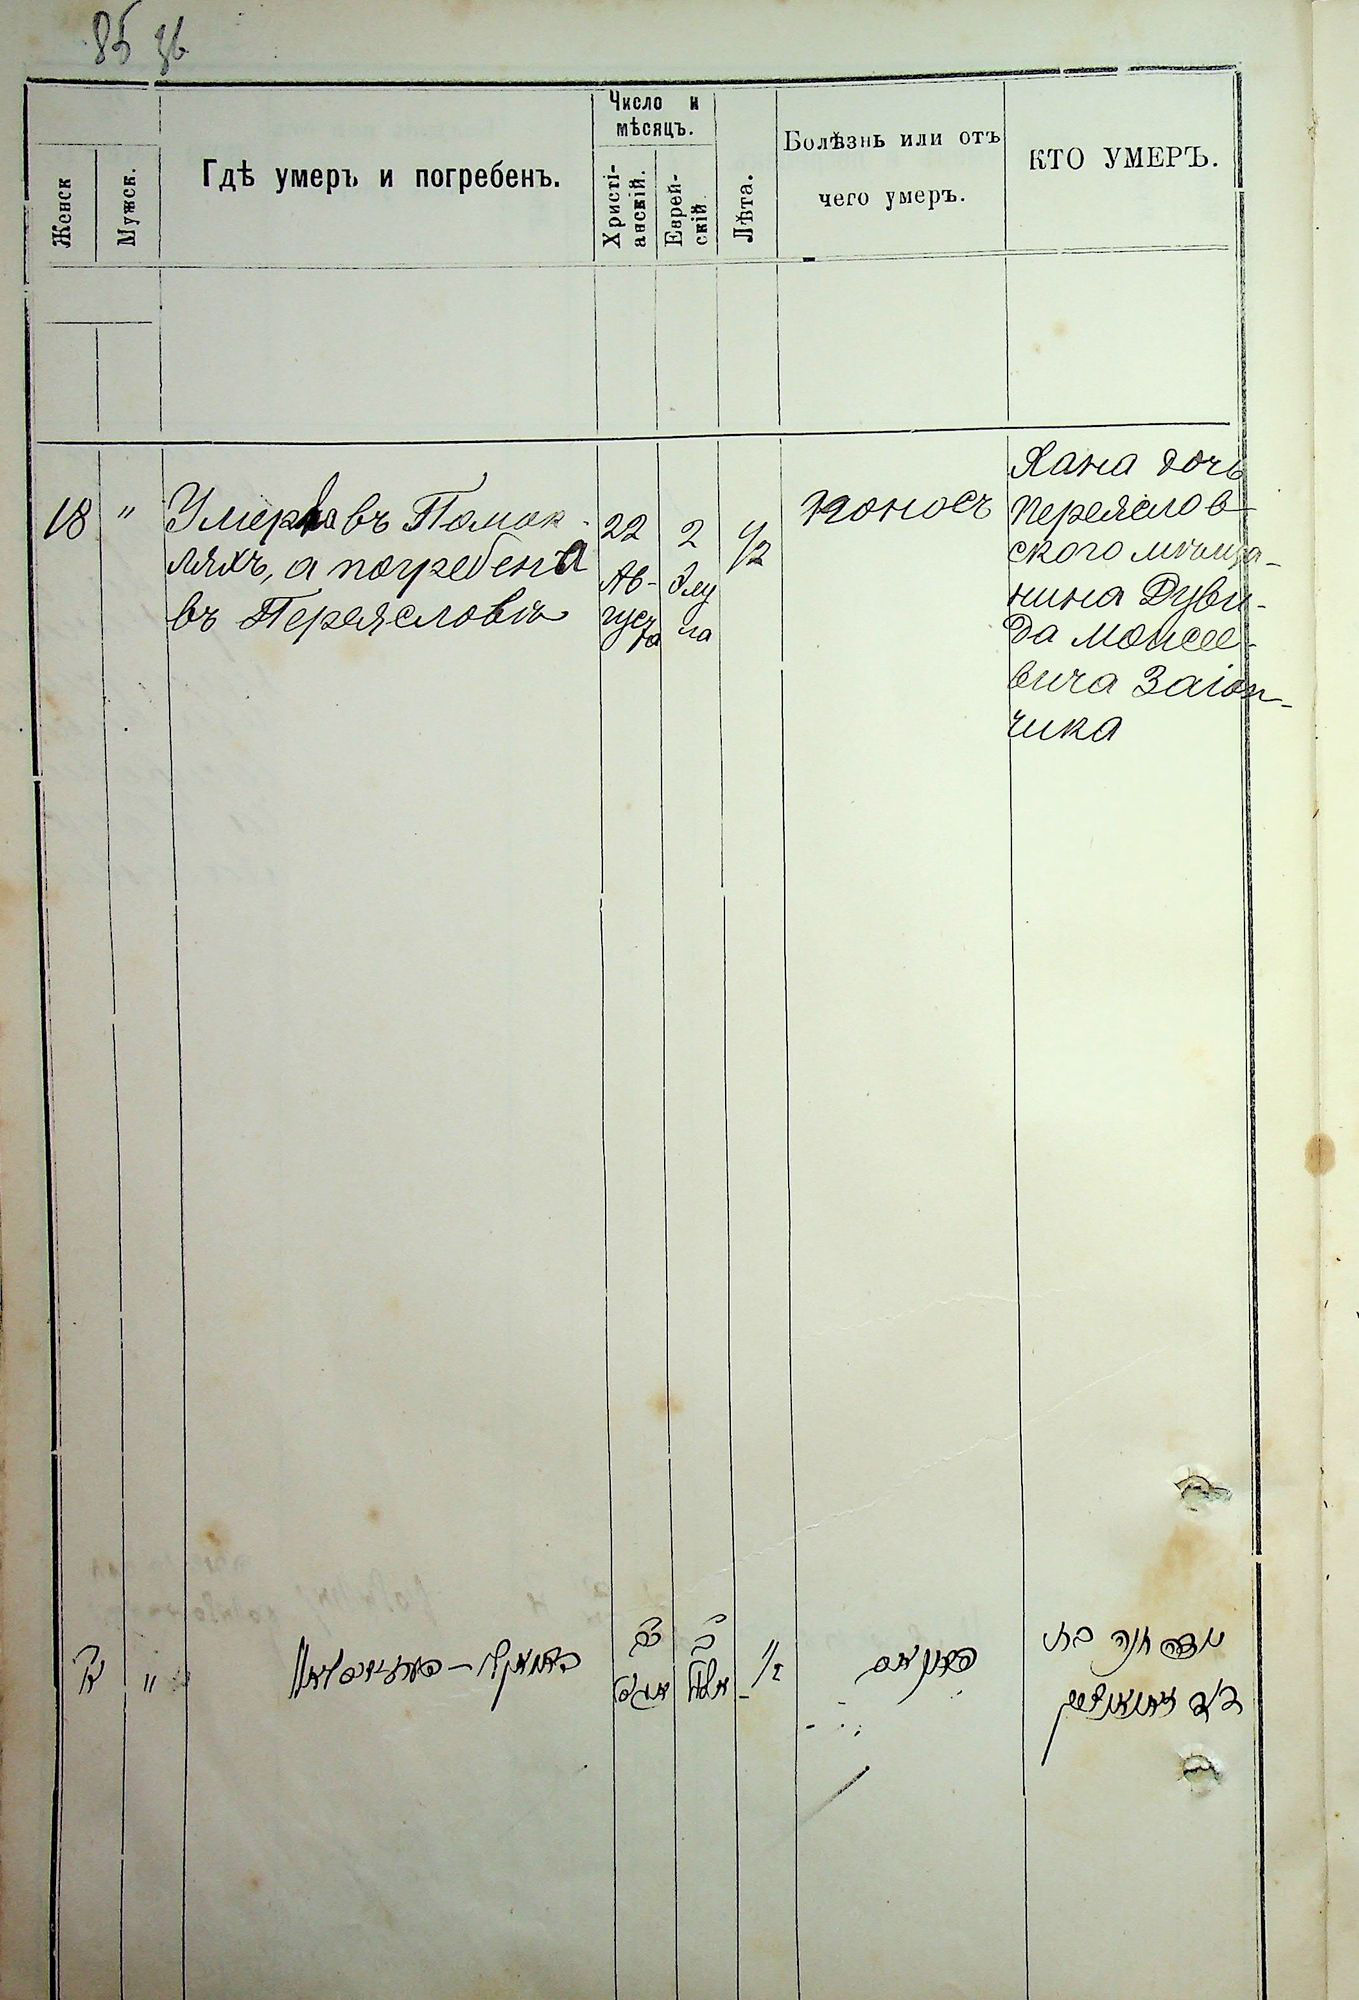 85 зв
Женск
Мужск.
Гдѣ умеръ и погребенъ.
Число и
мѣсяцъ.
Христі-
анскій.
Еврей-
скій
Лѣта.
Болѣзнь или отъ
чего умеръ.
КТО УМЕРЪ.
18
"
Умерла въ Помок-
ляхъ, а погребена
въ Переясловѣ
22
Ав-
густа
2
Элу
ла
1/2
Поносъ
Хана дочь
Переяслов-
ского мѣща-
нина Дуви-
да Моисее-
вича Заіон-
чика
"
1/2
חנה בת